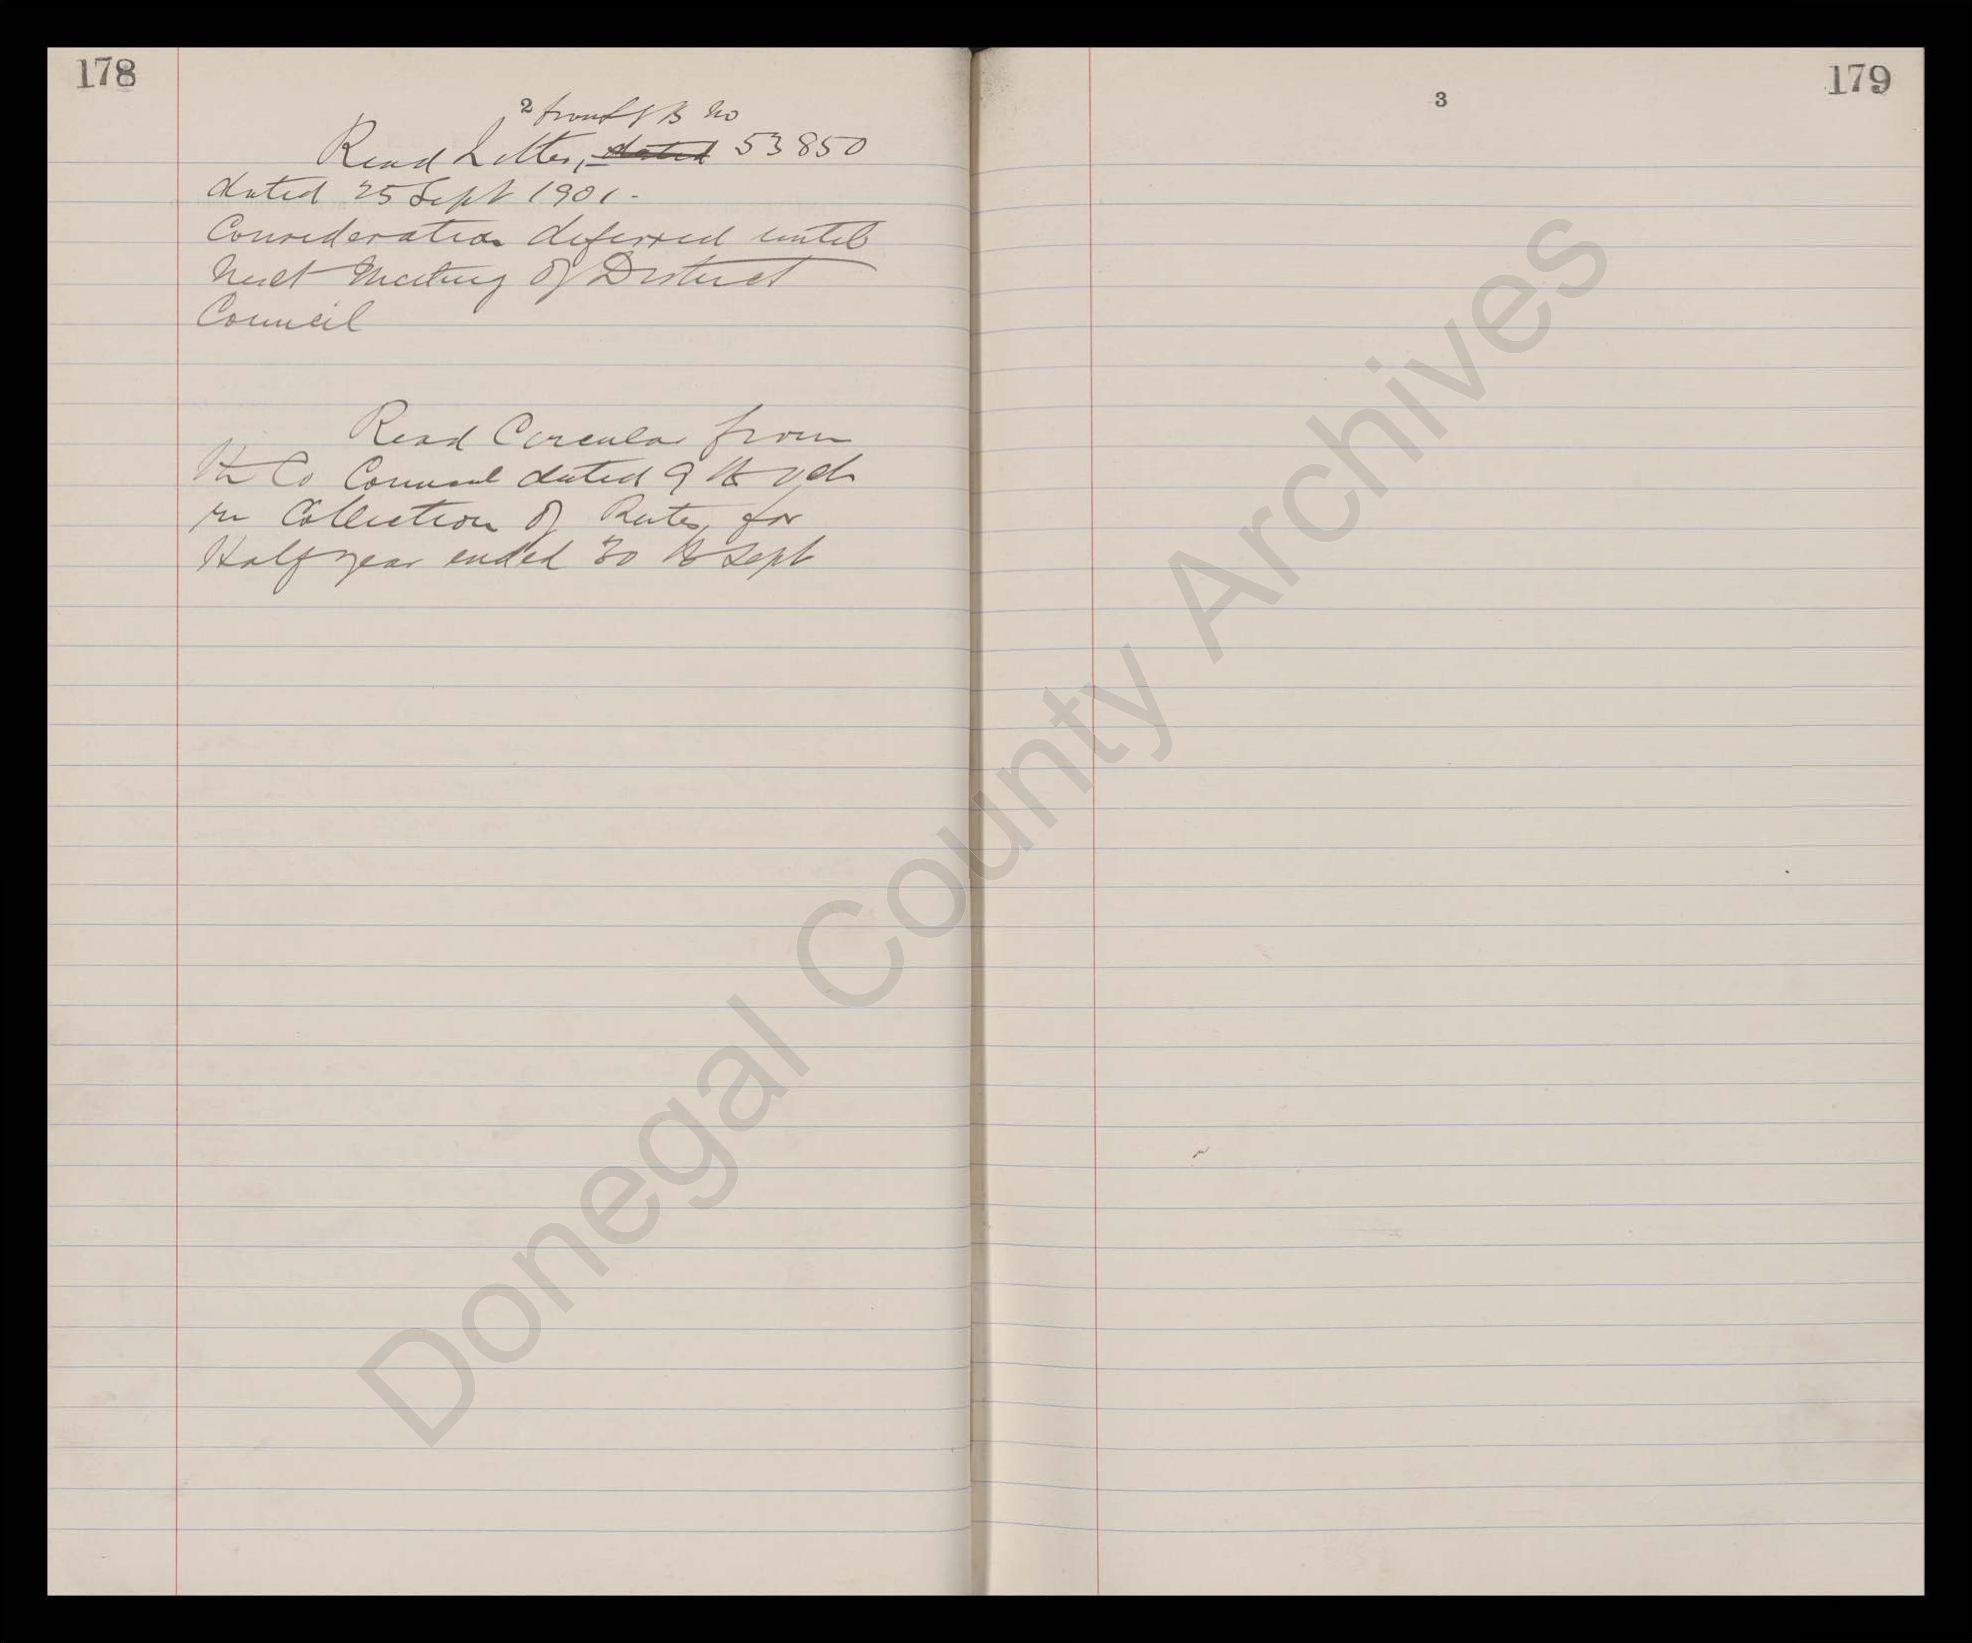 178
2
from L G B No
Read Letter, dated 53850
dated 25 Sept 1901.
Consideration deferred until
Next Meeting of District
Council
Read Circular from
the Co Council dated 9th
re Collection of Rates for
Half year ended 30th Sept
179
3
Donegal County Archives